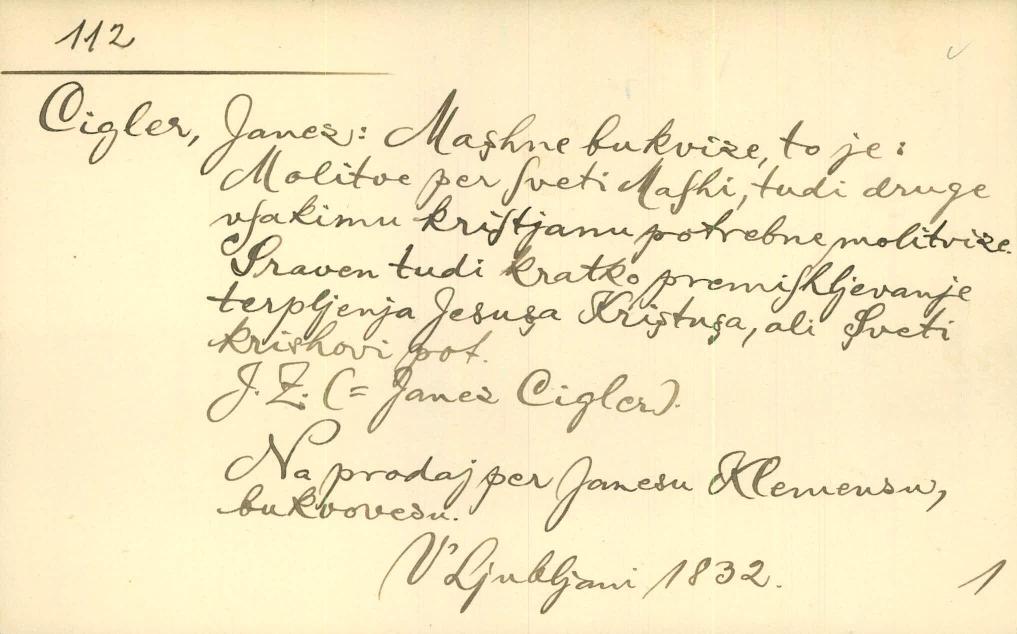 112
Cigler, Janez: Maşhne bukvize, to je:
Molitve per ſveti Maſhi, tudi druge
vſakimu kriſtjanu potrebne molitvize.
Praven tudi kratko premiſhljevanje
terpljenja Jesuşa Kriştuşa, ali Şveti
krishovi pot.
J. Z. (= Janez Cigler).
Na prodaj per Janesu Klemensu,
bukvovesu.
V' Ljubljani 1832.
1